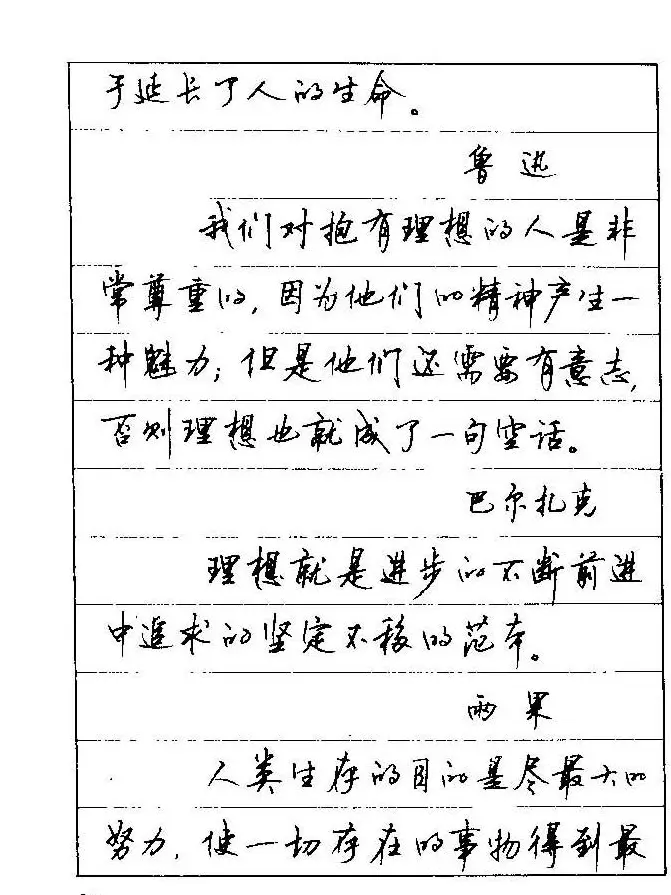 于延长了人的生命。
鲁迅
我们对抱有理想的人是非
常尊重的,因为他们的精神产生一
种魅力;但是他们还需要有意志,
否则理想也就成了一句空话。
巴尔扎克
理想就是进步的不断前进
中追求的坚定不移的范本。
雨果
人类生存的目的是尽最大的
努力,使一切存在的事物得到最